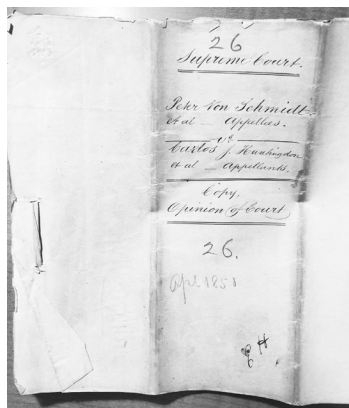 26
Supreme Court.
Peter Von Schmidt
et al — Appellees.
vs
Carlos J. Huntingdon
et al — Appellants.
Copy.
Opinion (of Court)
26.
Apl 1851
H